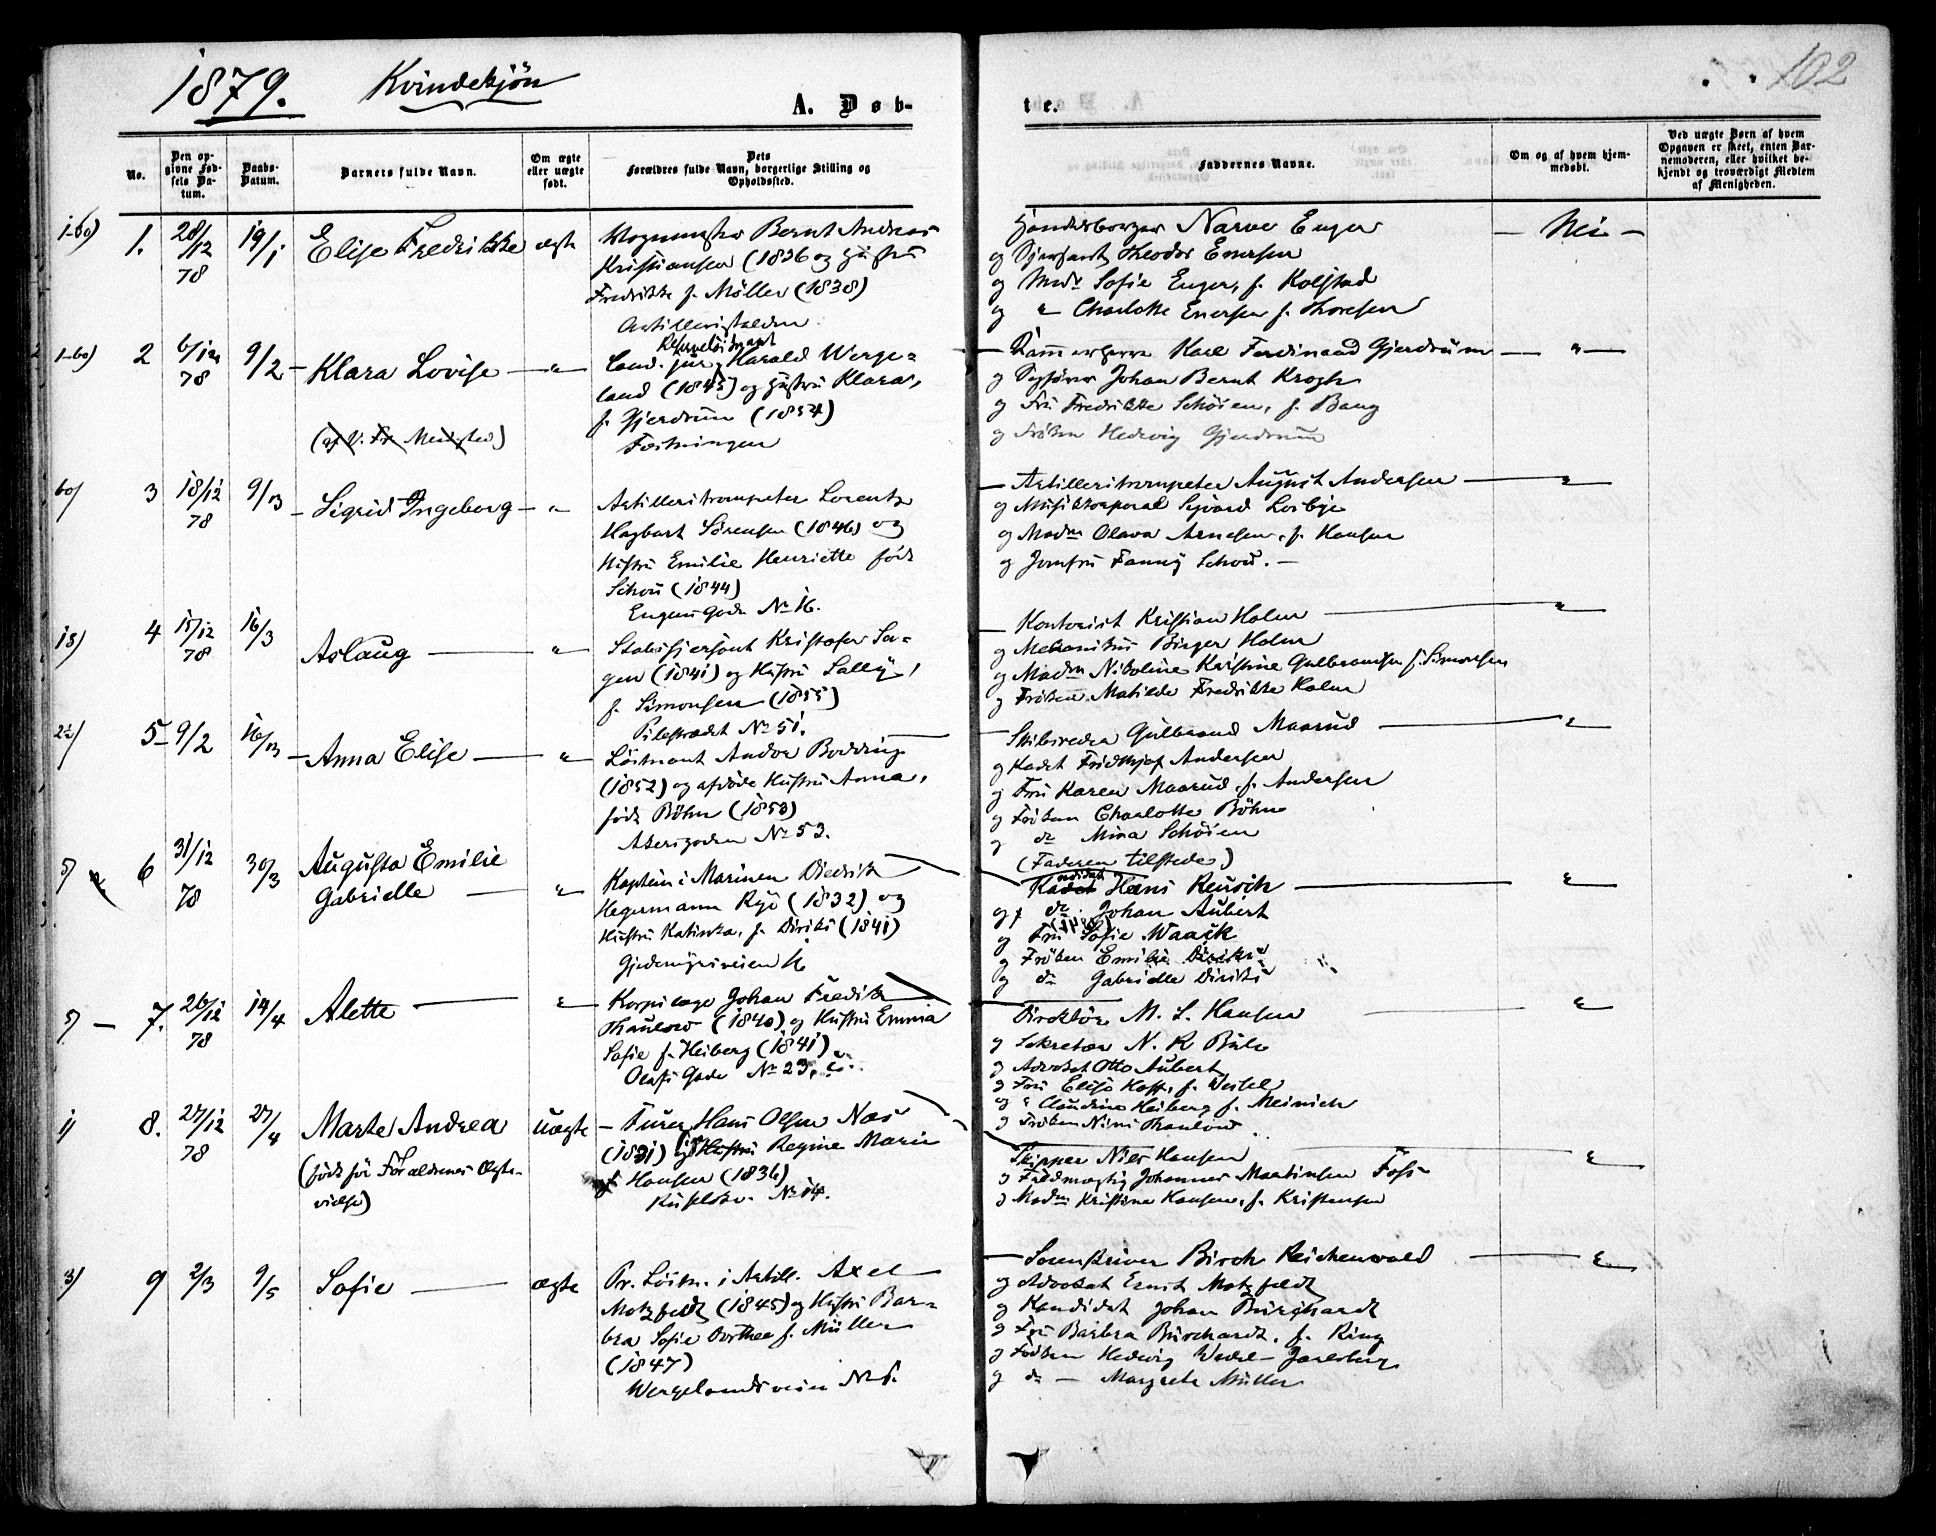 1879. Kvindekjön
A. Døb-
te.
102
No.
Den opgivne Fødsels Datum.
Daabs-Datum.
Barnets fulde Navn.
Om ægte eller uægte født.
Dets Forældres fulde Navn, borgerlige Stilling og Opholdssted.
Faddernes Navne.
Om og af hvem hjemmedøbt.
Ved uægte Børn af hvem Opgaven er skeet, enten Barnemoderen, eller hvilket bekjendt og troværdigt Medlem af Menigheden.
1. 28/12 78 19/1 Elise Fredrikke ægte
Bernt Andreas
Kristiansen (1836 og Hustru
Fredrikke f. Möller (1838)
Narve Enger
og Sjersjant Theodor Enersen
og Mad. Sofie Enger, f. Kolstad
og " Charlotte Enersen f. Thoresen
— Nei —
2 6/12 78 9/2 — Klara Lovise — "
Cand. jur. Harald Werge-
land (1845) og Hustru Klara,
f. Gjerdrum (1854)
Fæstningen
— Kammerherre Karl Ferdinand Gjerdrum — " —
og Johan Bernt Krogh
og Fru Fredrikke Schöien, f. Bang
og Fröken Hedevig Gjerdrum
3 18/12 78 9/3 — Sigrid Ingeborg — "
Artilleritrompeter Lorentz
Hagbart Sörensen (1846) og
Hustru Emilie Henriette född
Schou (1844)
Eugenigade No 16.
— Artilleritrompeter August Andersen — "
og Musikkorporal Loibye
og Madm Olava Arnesen, f. Hansen
og Jomfru Fanny Schou. —
18) 4 15/12 78 16/3 Aslaug — "
Stabssjersjant Kristofer Sa-
gen (1841) og Hustru Sally,
f. Simonsen (1855)
Pilestrædet No 51.
— Kontorist Kristian Holm — "
og Mekanikus Birger Holm
og Madm Nikoline Kristine Gulbrandsen f. Simonsen
og Fröken Matilde Fredrikke Holm
5 9/2 16/3 — Anna Elise — "
Löitnant Andor Bödding
(1852) og afdöde Hustru Anna,
född Böhn (1853)
Akersgaden No 53.
Skibsreder Gulbrand Maarud — "
og Kadet Fridthjof Andersen
og Fru Karen Maarud, f. Andersen
og Fröken Charlotte Böhn
og do Mina Schöien
(Faderen tilstede)
5) 6 31/12 78 30/3 Augusta Emilie
Gabrielle — "
Kaptein i Marinen Diedrik
Hegermann Rye (1832) og
Hustru Katinka, f. Diriks (1841)
Hans Reusch — "
og do. Johan Aubert
og Fru Sofie Waack
og Fröken Emilie Diriks
og do Gabrielle Diriks
5) — 7. 26/12 78 14/4 Alette — "
— Korpslæge Johan Fredrik
Thaulow (1840) og Hustru Emma
Sofie f. Heiberg (1841)
Olafs Gade No 23,
Direktör M. S. Hansen — "
og Sekretær N. R Bull
og Advokat Otto Aubert
og Fru Elise Hoff, f. Weisel
og " Claudine Heiberg f. Meinich
og Fröken Nini Thaulow.
1) 8. 27/12 78 27/4 Marte Andrea uægte
(född för Forældrenes Ægte-
vielse)
— Furer Hans Olsen Næs
(1831) og Hustru Regine Marie
f. Hansen (1836)
No 14.
Skipper Nils Hansen — "
og Fuldmægtig Johannes Martinsen Foss
og Madm Kristine Hansen, f. Kristensen
3) 9 2/3 9/5 Sofie — ægte
Pr. Löitn. i Artill. Axel
Motzfeldt (1845) og Hustru Bar-
bra Sofie Dorthea f. Müller
(1847)
Wergelandsveien No 5.
— Sorenskriver Birch Reichenwald — "
og Advokat Ernst Motzfeldt
og Kandidat Johan Burchardt
og Fru Barbra Burchardt, f. Ring
og Fröken Hedevig Wedel-Jarlsberg
og do — Margrete Müller